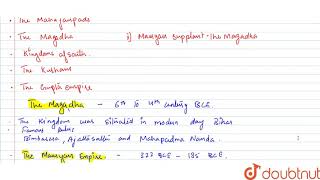 The Mahajanpads
The Magadha    ii) Mauryan supplant - the Magadha
Kingdoms of south.
The Kushans
The Gupta empire
The Magadha - 6th to 4th century BCE.
The Kingdom was situated in modern day Bihar
Famous Rulers
Bimbasara, Ajatashatru and Mahapadma Nanda.
The Mauryan Empire - 322 BCE - 185 BCE.
doubtnut